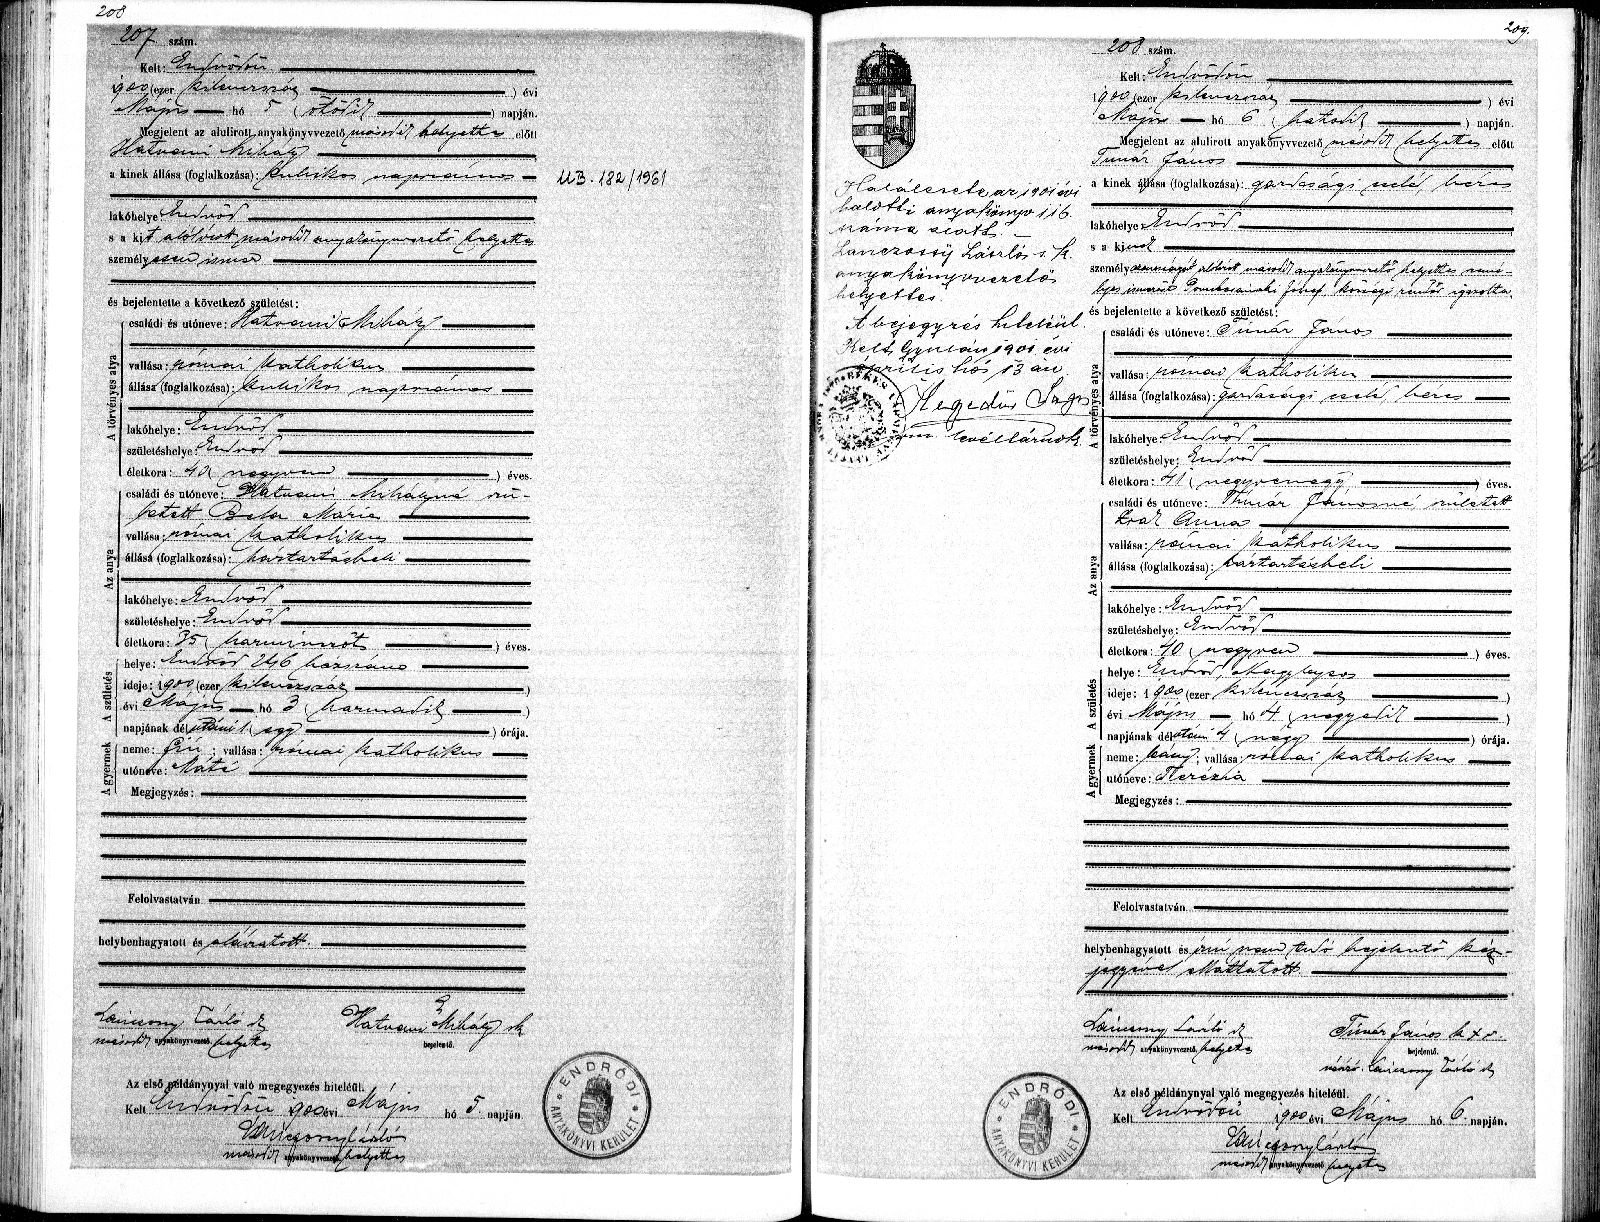 208
207 szám.
Kelt: Endrődön
1900 (ezer kilenczszáz ) évi
Május hó 5 ( ötödik ) napján.
Megjelent az alulirott anyakönyvvezető második helyettes előtt
Hatvani Mihály
a kinek állása (foglalkozása): kubikos napszámos
UB. 182/1961
lakóhelye: Endrőd
s a kit alólirott második anyakönyvvezető helyettes
személyesen ismer
és bejelentette a következő születést:
A törvényes atya
családi és utóneve: Hatvani Mihály
vallása: római katholikus
állása (foglalkozása): kubikos napszámos
lakóhelye: Endrőd
születéshelye: Endrőd
életkora: 40 ( negyven ) éves.
Az anya
családi és utóneve: Hatvani Mihályné szü-
letett Bela Mária
vallása: római katholikus
állása (foglalkozása): háztartásbeli
lakóhelye: Endrőd
születéshelye: Endrőd
életkora: 35 ( harminczöt ) éves.
A születés
helye: Endrőd 246 házszám
ideje: 1900 (ezer kilenczszáz )
évi Május hó 3 ( harmadik )
napjának délutáni 1 ( egy ) órája.
A gyermek
neme: fiú ; vallása: római katholikus
utóneve: Máté
Megjegyzés:
Felolvastatván
helybenhagyatott és aláiratott.
Láncsony László sk
második anyakönyvvezető helyettes
Hatvani Mihály sk
bejelentő.
Az első példánynyal való megegyezés hiteléül.
Kelt Endrődön 1900 évi Május hó 5. napján.
Láncsony László
második anyakönyvvezető helyettes
ENDRŐDI ANYAKÖNYVI KERÜLET
209.
208 szám.
Kelt: Endrődön
1900 (ezer kilenczszáz ) évi
Május hó 6 ( hatodik ) napján.
Megjelent az alulirott anyakönyvvezető második helyettes előtt
Timár János
a kinek állása (foglalkozása): gazdasági cseléd, béres
lakóhelye: Endrőd
s a kinek
személyazonságát alólirt második anyakönyvvezető helyettes szemé-
lyes ismerőse József, községi rendőr igazolta.
és bejelentette a következő születést:
A törvényes atya
családi és utóneve: Timár János
vallása: római katholikus
állása (foglalkozása): gazdasági cseléd, béres
lakóhelye: Endrőd
születéshelye: Endrőd
életkora: 41 ( negyvenegy ) éves.
Az anya
családi és utóneve: Timár Jánosné született
Anna
vallása: római katholikus
állása (foglalkozása): háztartásbeli
lakóhelye: Endrőd
születéshelye: Endrőd
életkora: 40 ( negyven ) éves.
A születés
helye: Endrőd, Nagylapos
ideje: 1900 (ezer kilenczszáz )
évi Május hó 4 ( negyedik )
napjának délutáni 4 ( négy ) órája.
A gyermek
neme: leány ; vallása: római katholikus
utóneve: Terézia
Megjegyzés:
Felolvastatván
helybenhagyatott és irni nem tudó bejelentő kéz-
jegyével elláttatott
Láncsony László sk
második anyakönyvvezető helyettes
Timár János k + v.
bejelentő.
névíró: Láncsony László sk
Az első példánynyal való megegyezés hiteléül.
Kelt Endrődön 1900 évi Május hó 6. napján.
Láncsony László
második anyakönyvvezető helyettes
ENDRŐDI ANYAKÖNYVI KERÜLET
Halálesete az 1901 évi
halotti anyakönyv 116.
száma alatt.
Lanczossy László s. k.
anyakönyvvezető
helyettes.
A bejegyzés hiteléül.
Kelt Gyulán 1901 évi
április hó 13 án.
Hegedüs
levéltárnok